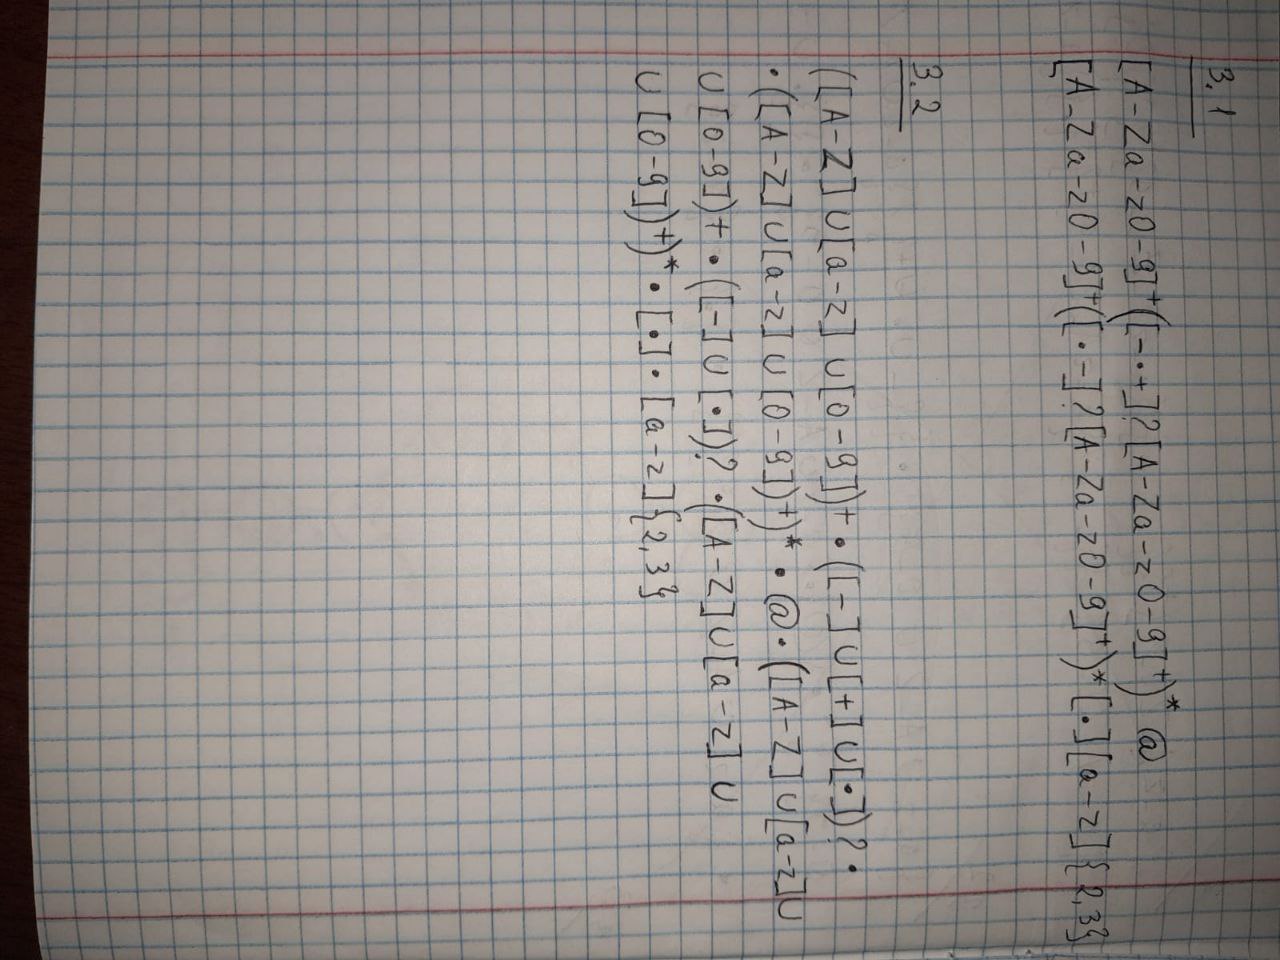 3.1
[A-Za-z0-9]⁺([-·+]?[A-Za-z0-9]⁺)* @
[A-Za-z0-9]⁺([·-]?[A-Za-z0-9]⁺)*[·][a-z]{2,3}
3.2
([A-Z]∪[a-z]∪[0-9])+•([-]∪[+]∪[•])?•
•([A-Z]∪[a-z]∪[0-9])⁺)*•@•([A-Z]∪[a-z]∪
∪[0-9])+•([-]∪[•])?•([A-Z]∪[a-z]∪
∪[0-9])⁺)*•[•]•[a-z]{2,3}